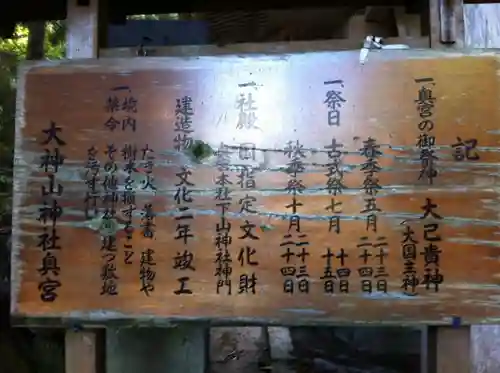 記
一、奥宮の御祭神 大己貴神
(大国主神)
一、祭日
春季祭五月 二十三日
二十四日
古式祭七月 十四日
十五日
秋季祭十月 二十三日
二十四日
一、社殿 国指定文化財
奥宮本社下山神社神門
建造物 文化二年竣工
一、境内 たき火 落書 建物や
禁令 樹木を損すること
その他神社の建つ敷地
を汚す行
大神山神社奥宮